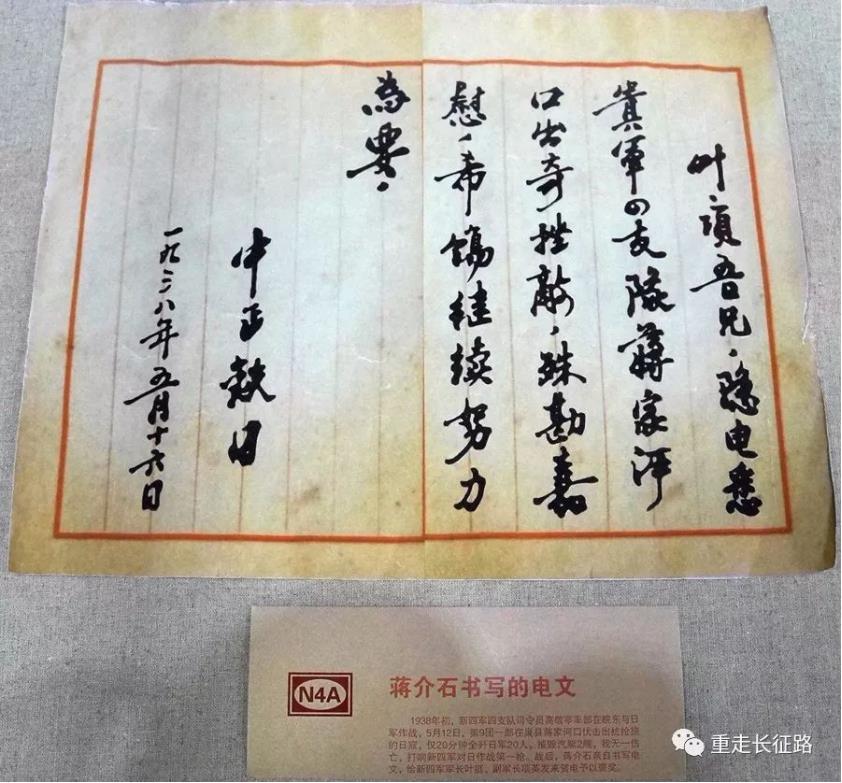 叶、項吾兄、隐电悉
貴軍四支隊蔣家河
口出奇挫敵、殊勘嘉
慰、希继续努力
為要、
中正日
一九三八年五月十六日
N4A
蒋介石书写的电文
1938年初，新四军四支队司令员高敬亭率部在皖东与日
军作战，5月12日，第9团一部在巢县蒋家河口伏击出扰抢掠
的日寇，仅20分钟全歼日军20人，摧毁汽艇2艘，我无一伤
亡，打响新四军对日作战第一枪。战后，蒋介石亲自书写电
文，给新四军军长叶挺、副军长项英发来贺电予以褒奖。
重走长征路